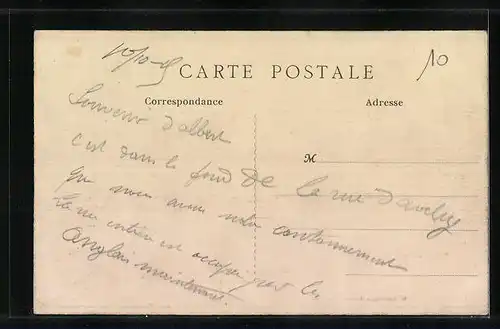 10/10-15
10
CARTE POSTALE
Correspondance
Adresse
M
Souvenir d'albert
c'est dans le fond de la rue d'aveluy
que nous avons notre cantonnement
entier est occupé par les
Anglais maintenant.